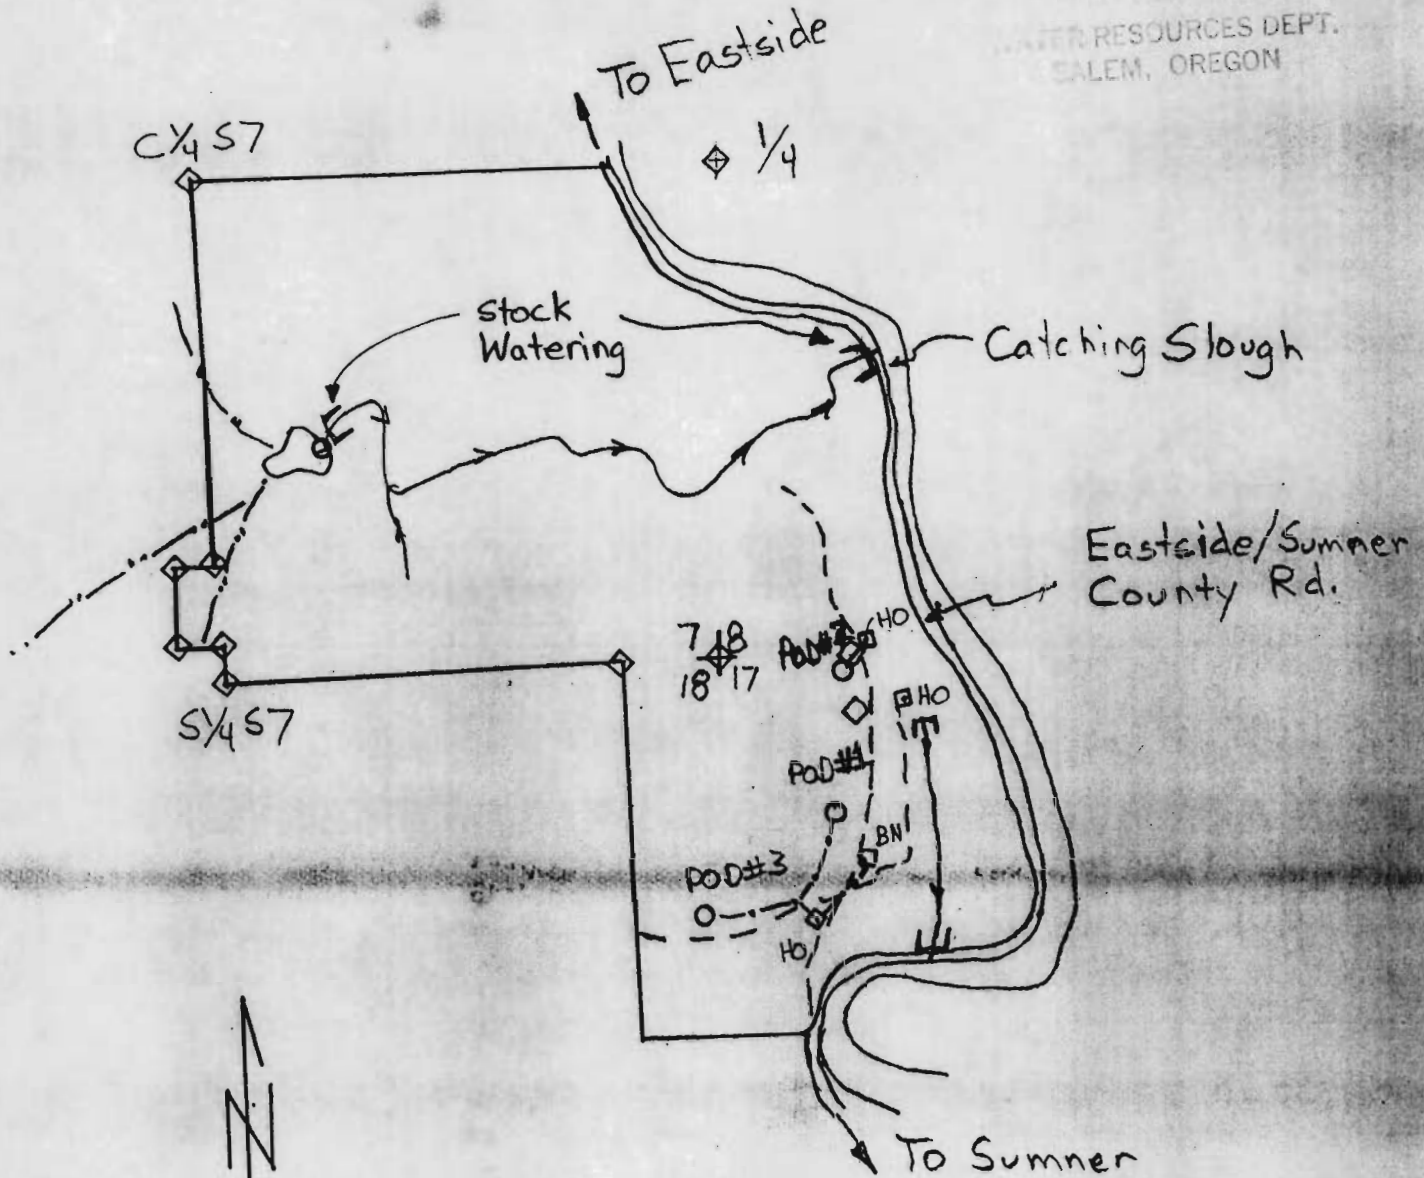 RESOURCES DEPT.
SALEM, OREGON
To Eastside
1/4
C1/4 S7
Stock
Watering
Catching Slough
Eastside/Sumner
County Rd.
7 8
18 17
HO
POD#2
HO
S1/4 S7
POD#1
BN
POD#3
HO
N
To Sumner